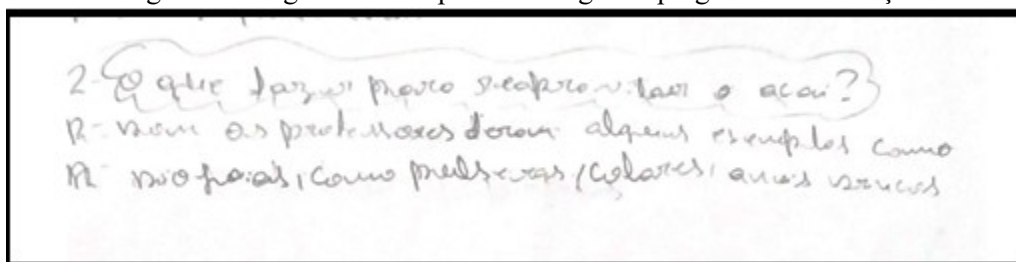 2- O que fazer para reaproveitar o açaí?
R- bom os professores deram alguns exemplos como
R- biojoias, como pulseiras, colares, aneis brincos